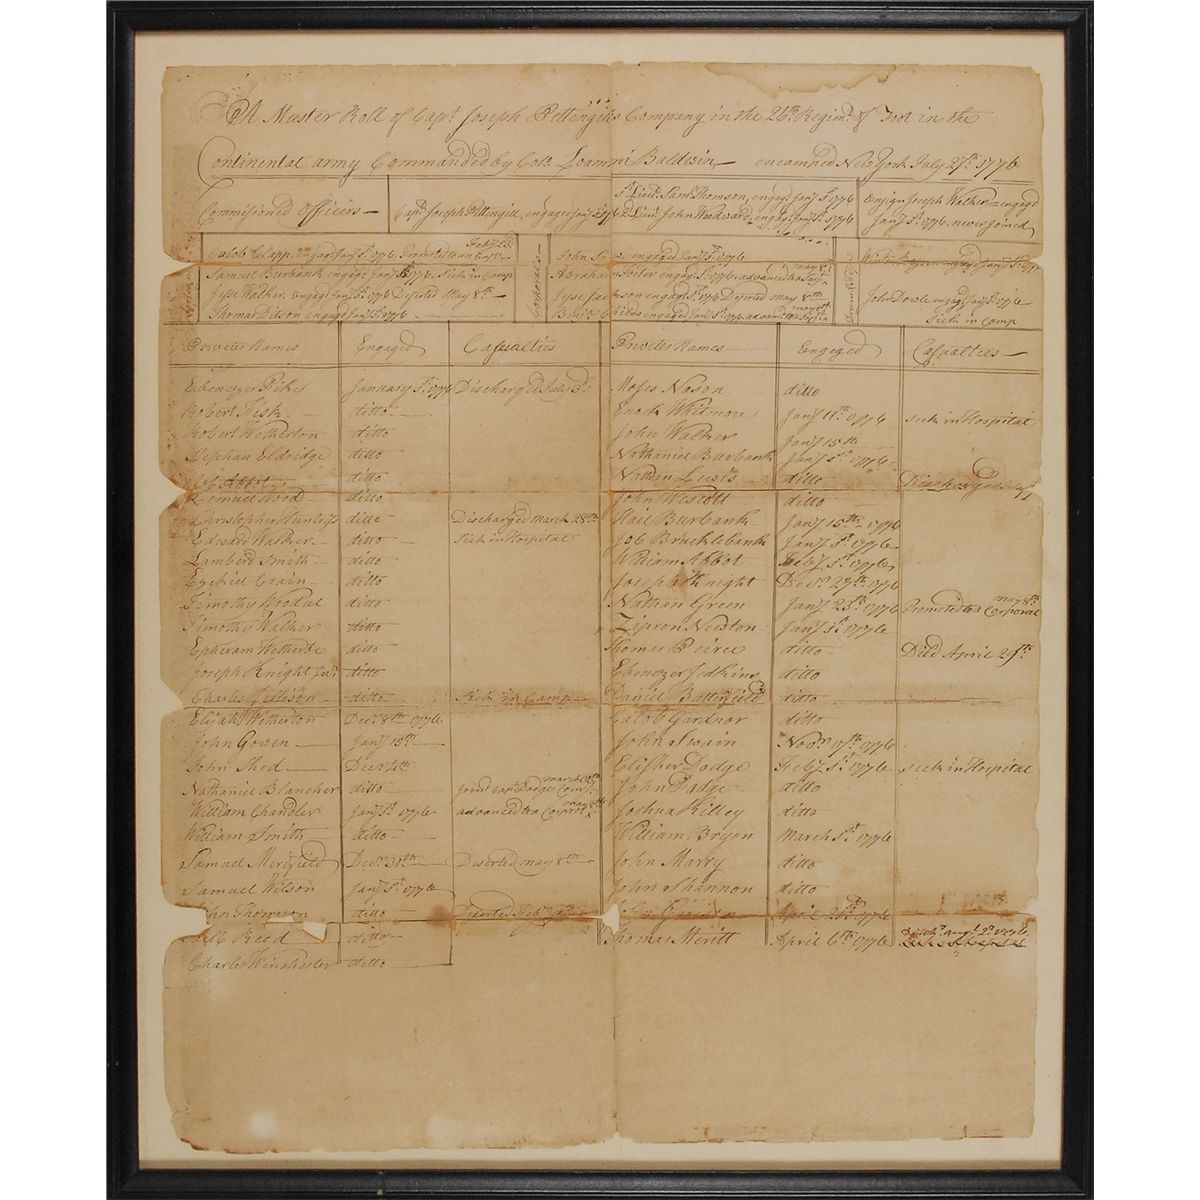 A Muster Roll of Capt Joseph Pettengills Company in the 26th Regimt of Foot in the
Continental army Commanded by Coll Loammi Baldwin encamped New York July 27th 1776
Commisioned Officers Capt Joseph Pettengill engaged Jany 1st 1776
1st Lieut Saml Thomson engagd Jany 1st 1776
2d Lieut John Woodward engagd Jany 1st 1776
Ensign Joseph Walker engagd
Jany 1st 1776 never joined
Calob Clapp engagd Jany 1st 1776 Promoted to an
Samuel Burbank engagd Jany 1st 1776 Sick in Camp
Jesse Walker engagd Jany 1st 1776 Deserted May 8th
Thomas Ditson engagd Jany 1st 1776
Corporals
John engaged Jany 1st 1776
Abraham Foster engagd Jany 1st 1776 advanced to Sergt may 8th
Jesse Jackson engagd Jany 1st 1776 Deserted may 8th
engagd Jany 1st 1776
engagd Jany 1st 1776
John Dowle engagd Jany 1st 1776
Sick in Camp
Privates Names Engaged Casualties Privates Names Engaged Casualties
Ebenezer Pike January 1st 1776 Discharged July 3d Moses Nason ditto
Robert Fisk ditto Enock Whitmore Jany 11th 1776 sick in Hospital
Robert Wetherton ditto John Walker Jany 15th
Stephan Eldredge ditto Nathaniel Burbank Jany 1st 1776
Abbot ditto Nathan Lewis ditto Discharged
Lemuel Wood ditto John Westott ditto
Christopher Huntriss ditto Discharged March 28th Hail Burbank Jany 15th 1776
Edward Walker ditto Sick in Hospital Job Brucklebank Jany 1st 1776
Lamberd Smith ditto William Abbot Feby 1st 1776
Ezekiel Crain ditto Joseph Knight Decr 27th 1776
Timothy Wooddel ditto Nathan Green Jany 25th 1776 Promoted to a Corporal may 8th
Timothy Walker ditto Zipron Newton Jany 1st 1776
Ephrivam Wetherbe ditto Thomas Peirce ditto Died April 29th
Joseph Knight Junr ditto Ebenezer Jedkins ditto
Charles Jellison ditto Sick in Camp Daniel Batterfield ditto
Elijah Wetherton Decr 8th 1776 Calob Gardner ditto
John Gowen Jany 15th John Swain Novr 17th 1776
John Shed Decr 4th Elisher Dodge Feby 1st 1776 sick in Hospital
Nathaniel Blancher ditto Joind Capt Dodges Compy march John Dodge ditto
William Chandler Jany 1st 1776 advanced to a Corporal may 8th Joshua Killey ditto
William Smith ditto William Bryon March 1st 1776
Samuel Merifield Decr 30th Deserted may 8th John Marry ditto
Samuel Wilson Jany 1st 1776 John Shannon ditto
John Thomson ditto Deserted Feby April 1776
Reed ditto Thomas Meritt April 6th 1776
Charles Winchester ditto